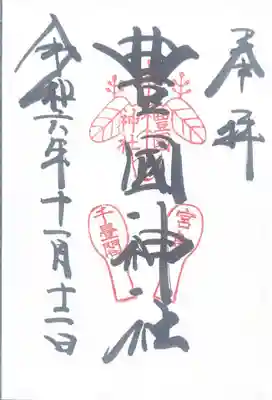 奉拝
豊國神社
豊國
神社
宮島
千畳閣
令和六年十一月十二日